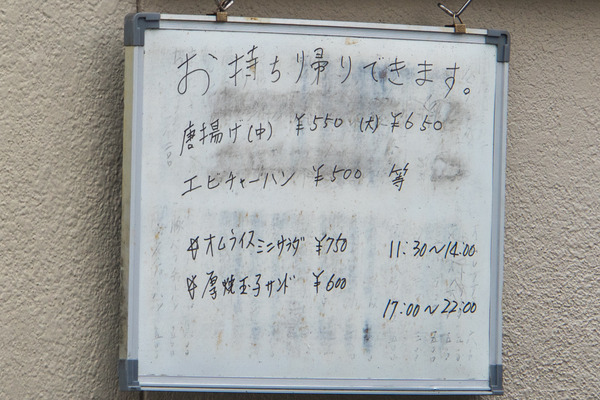 お持ち帰りできます。
唐揚げ(中) ¥550 (大) ¥650
エビチャーハン ¥500 等
#オムライスミニサラダ ¥750 11:30~14:00
#厚焼玉子サンド ¥600
17:00~22:00